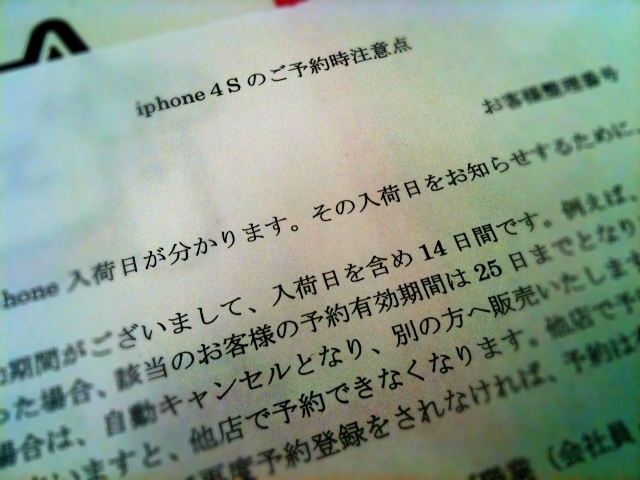 iphone４Sのご予約時注意点
お客様整理番号
hone 入荷日が分かります。その入荷日をお知らせするために、
期間がございまして、入荷日を含め 14 日間です。例えば、
った場合、該当のお客様の予約有効期間は 25 日までとなり
場合は、自動キャンセルとなり、別の方へ販売いたします
いますと、他店で予約できなくなります。他店で予
再度予約登録をされなければ、予約は
（会社員